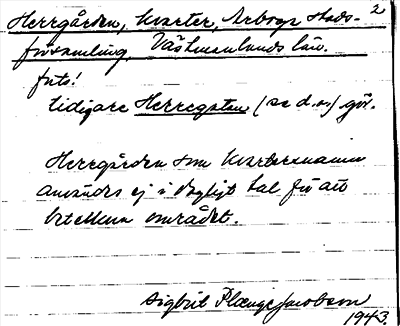 2
Herrgården, kvarter, Arboga stads-
församling, Västmanlands län.
fnts!
tidigare Herregatan (se d.o.) gör.
Herrgården som kvartersnamn
användes ej i dagligt tal för att
beteckna området.
Sigbrit Plænge Jacobson
1943.